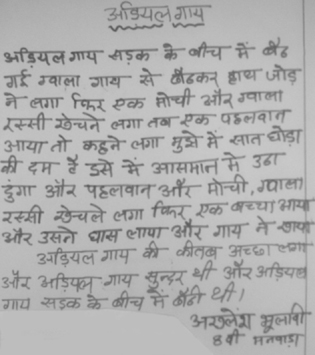 अड़ियल गाय
अड़ियल गाय सड़क के बीच में बैठ
गई ग्वाला गाय से बैठकर हाथ जोड़
ने लगा फिर एक मोची और ग्वाला
रस्सी खेचने लगा तब एक पहलवान
आया तो कहने लगा मुझे में सात घोड़ा
की दम है इसे में आसमान में उठा
दुंगा और पहलवान और मोची, ग्वाला
रस्सी खेचले लगा फिर एक बच्चा आया
और उसने घास लाया और गाय ने खाया
अड़ियल गाय की कीतब अच्छा लगा
और अड़ियल गाय सुन्दर थी और अड़ियल
गाय सडक के बीच में बैठी थी।
अखलेश
8 वी